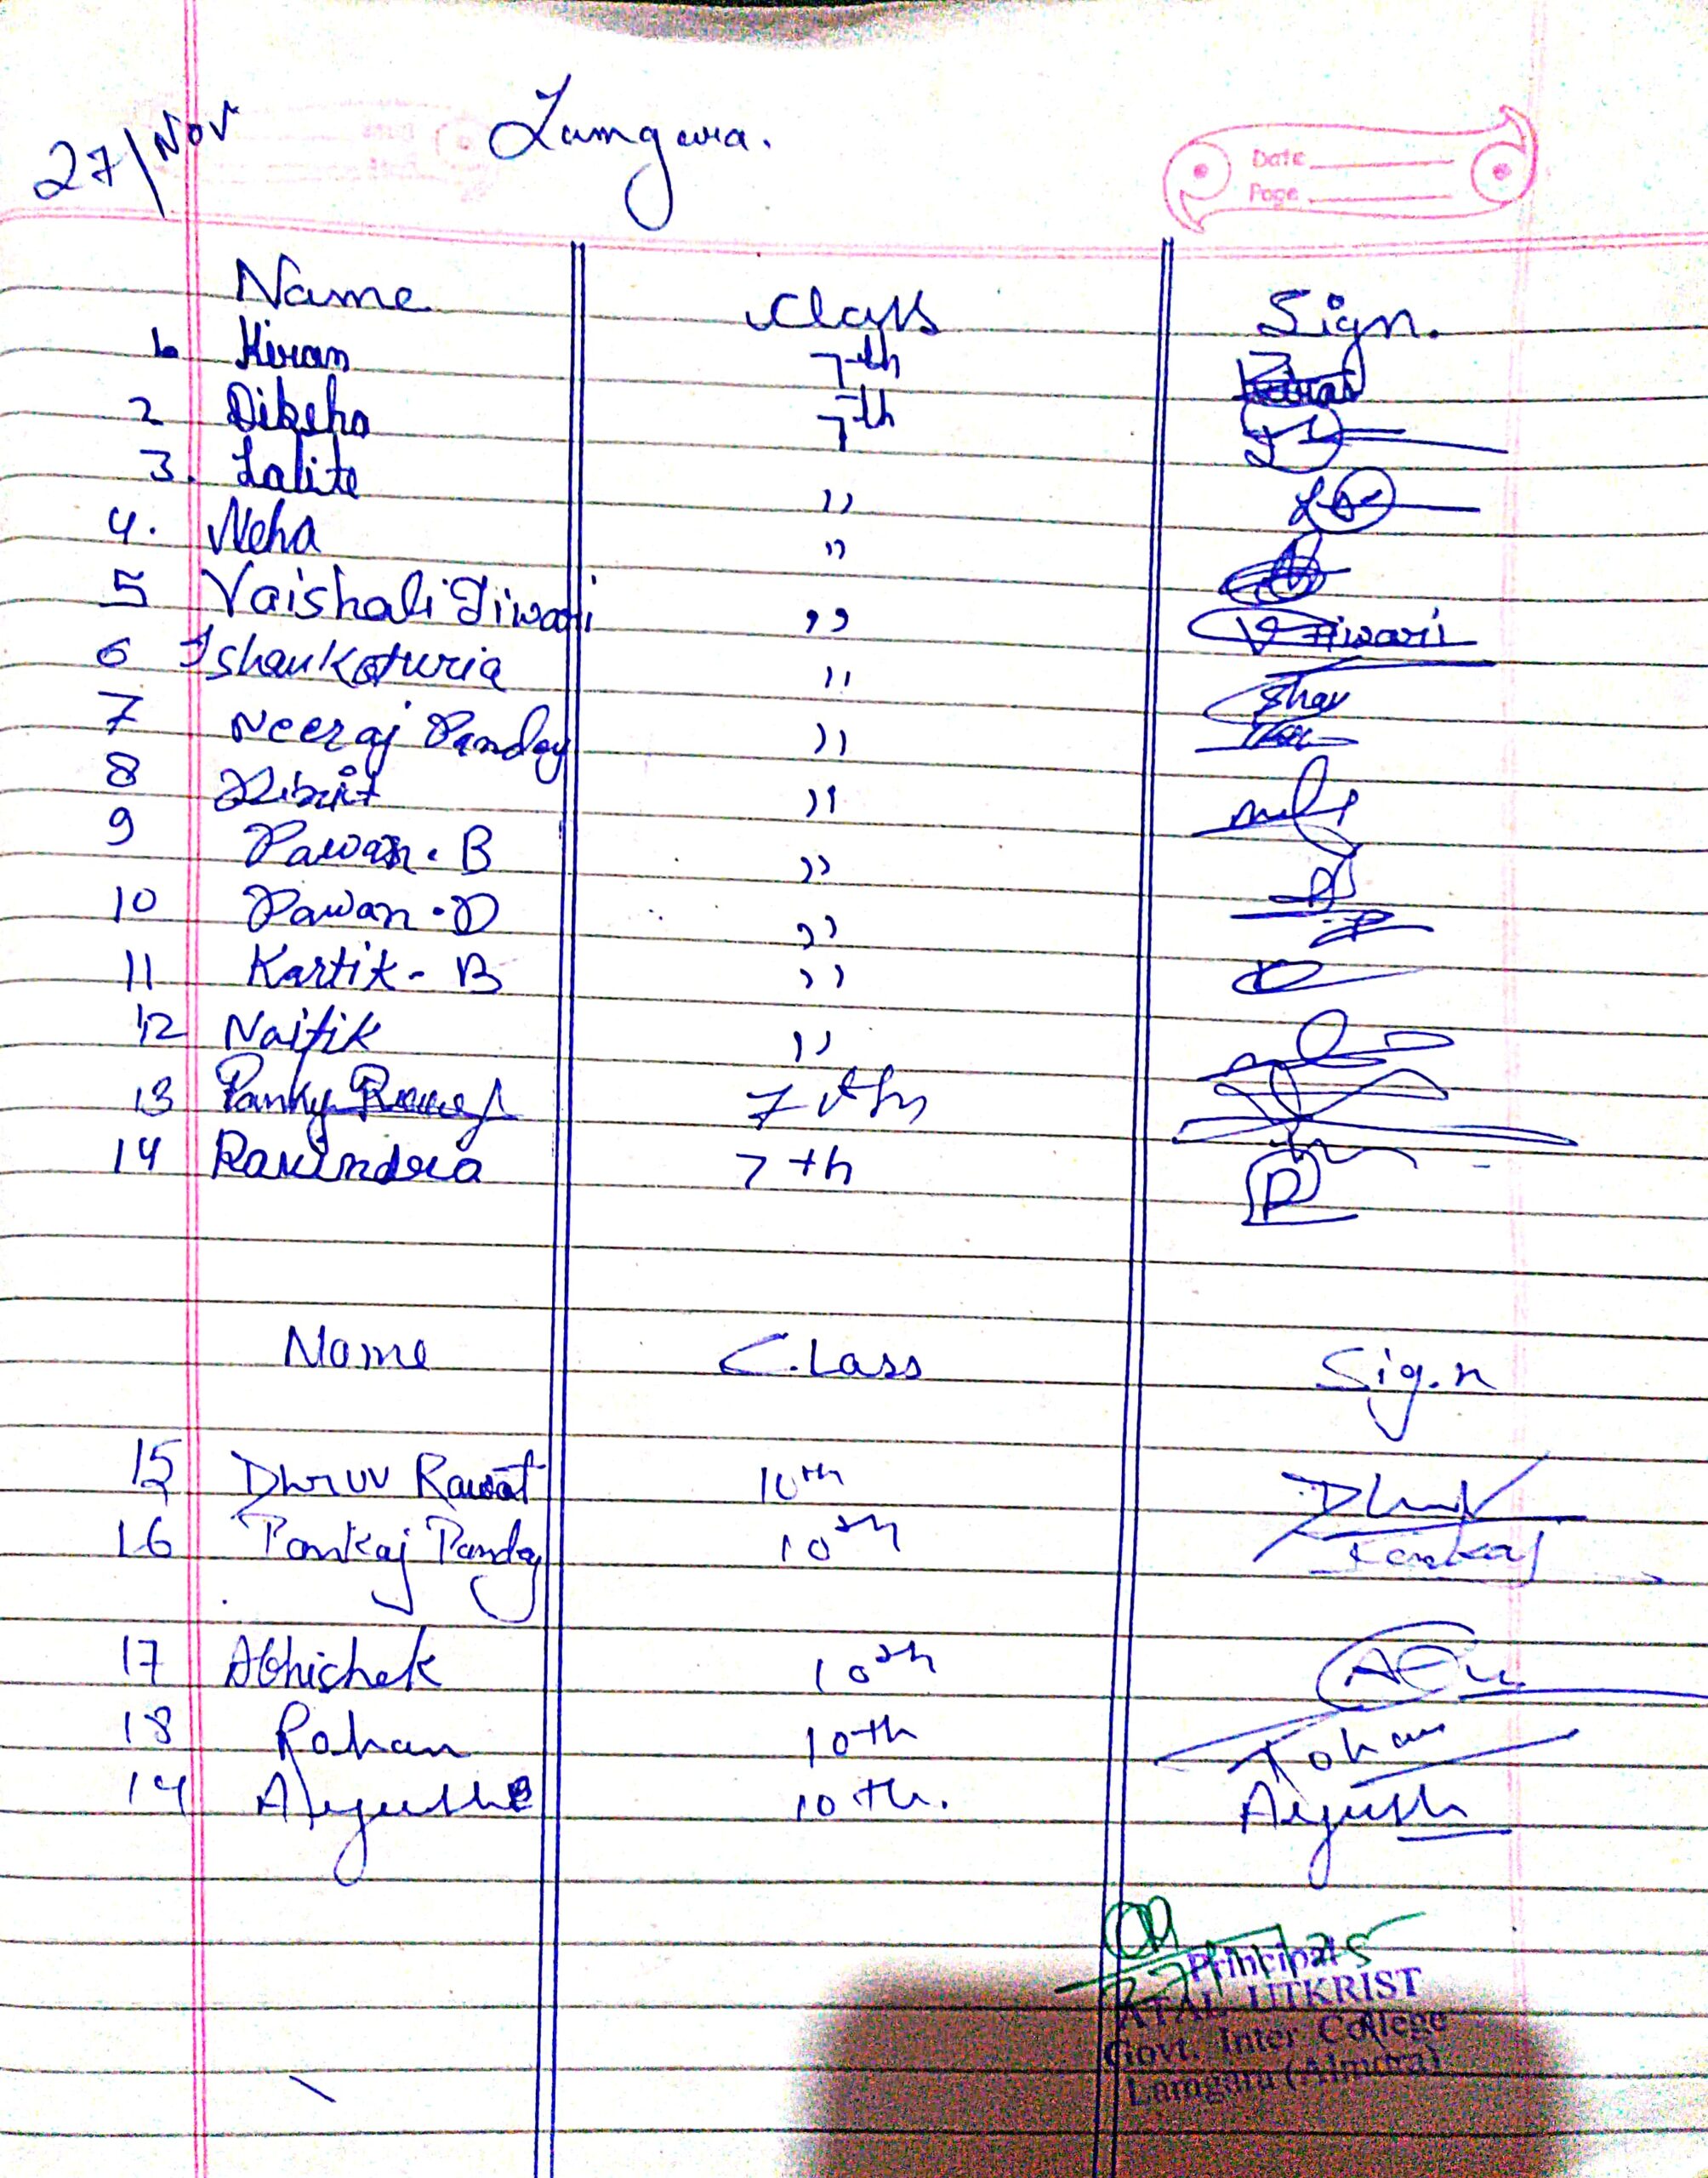 27/Nov
Lamgara.
Date
Page
Name Class Sign.
1. Kiran 7th
2 Diksha 7th
3. Lalite ,,
4. Neha ,,
5 Vaishali Tiwari ,, V Tiwari
6 Ishankaturia ,,
7 Neeraj Panday ,,
8 ,,
9 Pawan. B ,,
10 Pawan. D ,,
11 Kartik - B ,,
12 Naitik ,,
13 7th
14 Ravindra 7th R
Name Class Sign
15 Dhruv Rawat 10th Dhruv
16 Pankaj Panday 10th Pankaj
17 Abhichek 10th
18 Rohan 10th Rohan
19 Aayush 10th. Aayush
Principal
ATAL UTKRIST
Govt. Inter College
Lamgara (Almora)